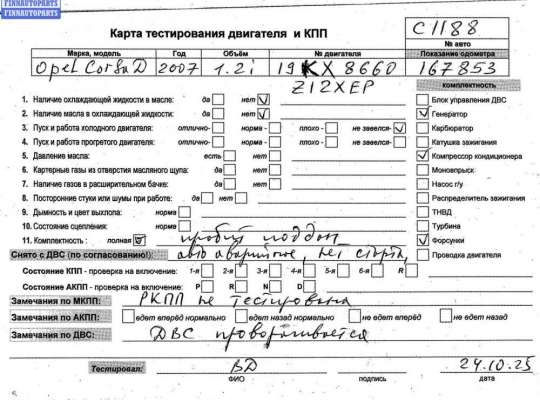 FINNAUTOPARTS
FINNAUTOPARTS
Карта тестирования двигателя и КПП
C1188
№ авто
Марка, модель Год Объём № двигателя Показание одометра
Opel Corsa D 2007 1.2i 19KX8660 167853
Z12XEP
комплектность
1. Наличие охлаждающей жидкости в масле: да нет Блок управления ДВС
2. Наличие масла в охлаждающей жидкости: да нет Генератор
3. Пуск и работа холодного двигателя: отлично- норма - плохо - не завелся- Карбюратор
4. Пуск и работа прогретого двигателя: отлично- норма - плохо - не завелся- Катушка зажигания
5. Давление масла: есть нет Компрессор кондиционера
6. Картерные газы из отверстия масляного щупа: да нет Моновпрыск
7. Наличие газов в расширительном бачке: да нет Насос г/у
8. Посторонние стуки или шумы при работе: да нет Распределитель зажигания
9. Дымность и цвет выхлопа: норма ТНВД
10. Состояние сцепления: норма Турбина
11. Комплектность : полная пробит поддон Форсунки
Снято с ДВС (по согласованию!): авто аварийное, нет старта, Проводка двигателя
Состояние КПП - проверка на включение: 1-я 2-я 3-я 4-я 5-я 6-я R
Состояние АКПП - проверка на включение: P R N D
Замечания по МКПП: РКПП не тестирована
Замечания по АКПП: едет вперёд нормально едет назад нормально не едет вперёд не едет назад
Замечания по ДВС: ДВС проворачивается
Тестировал: ВД 24.10.25
ФИО подпись дата